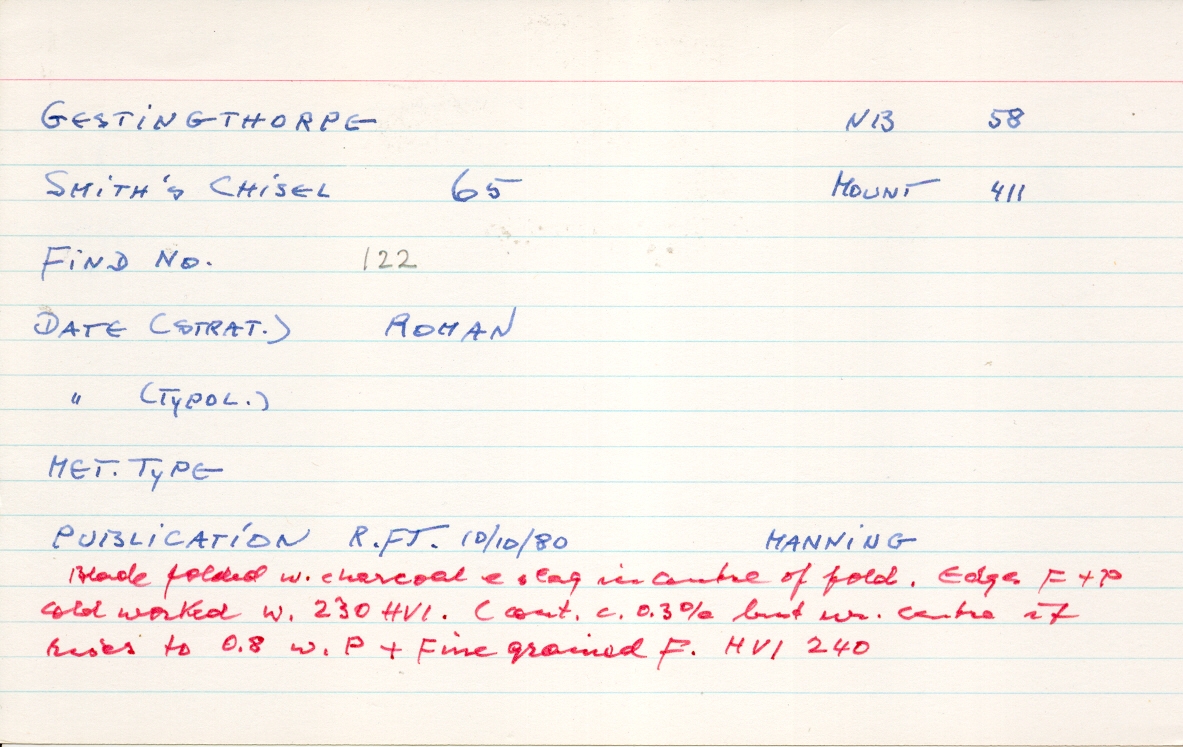 GESTINGTHORPE NB 58
SMITH'S CHISEL 65 MOUNT 411
FIND NO. 122
DATE (STRAT.) ROMAN
" (TYPOL.)
MET. TYPE
PUBLICATION R.F.T. 10/10/80 MANNING
Blade folded w. charcoal & slag in centre of fold. Edge F + P
cold worked w. 230 HV1. C cont. c. 0.3% but nr. centre it
rises to 0.8 w. P + Fine grained F. HV1 240